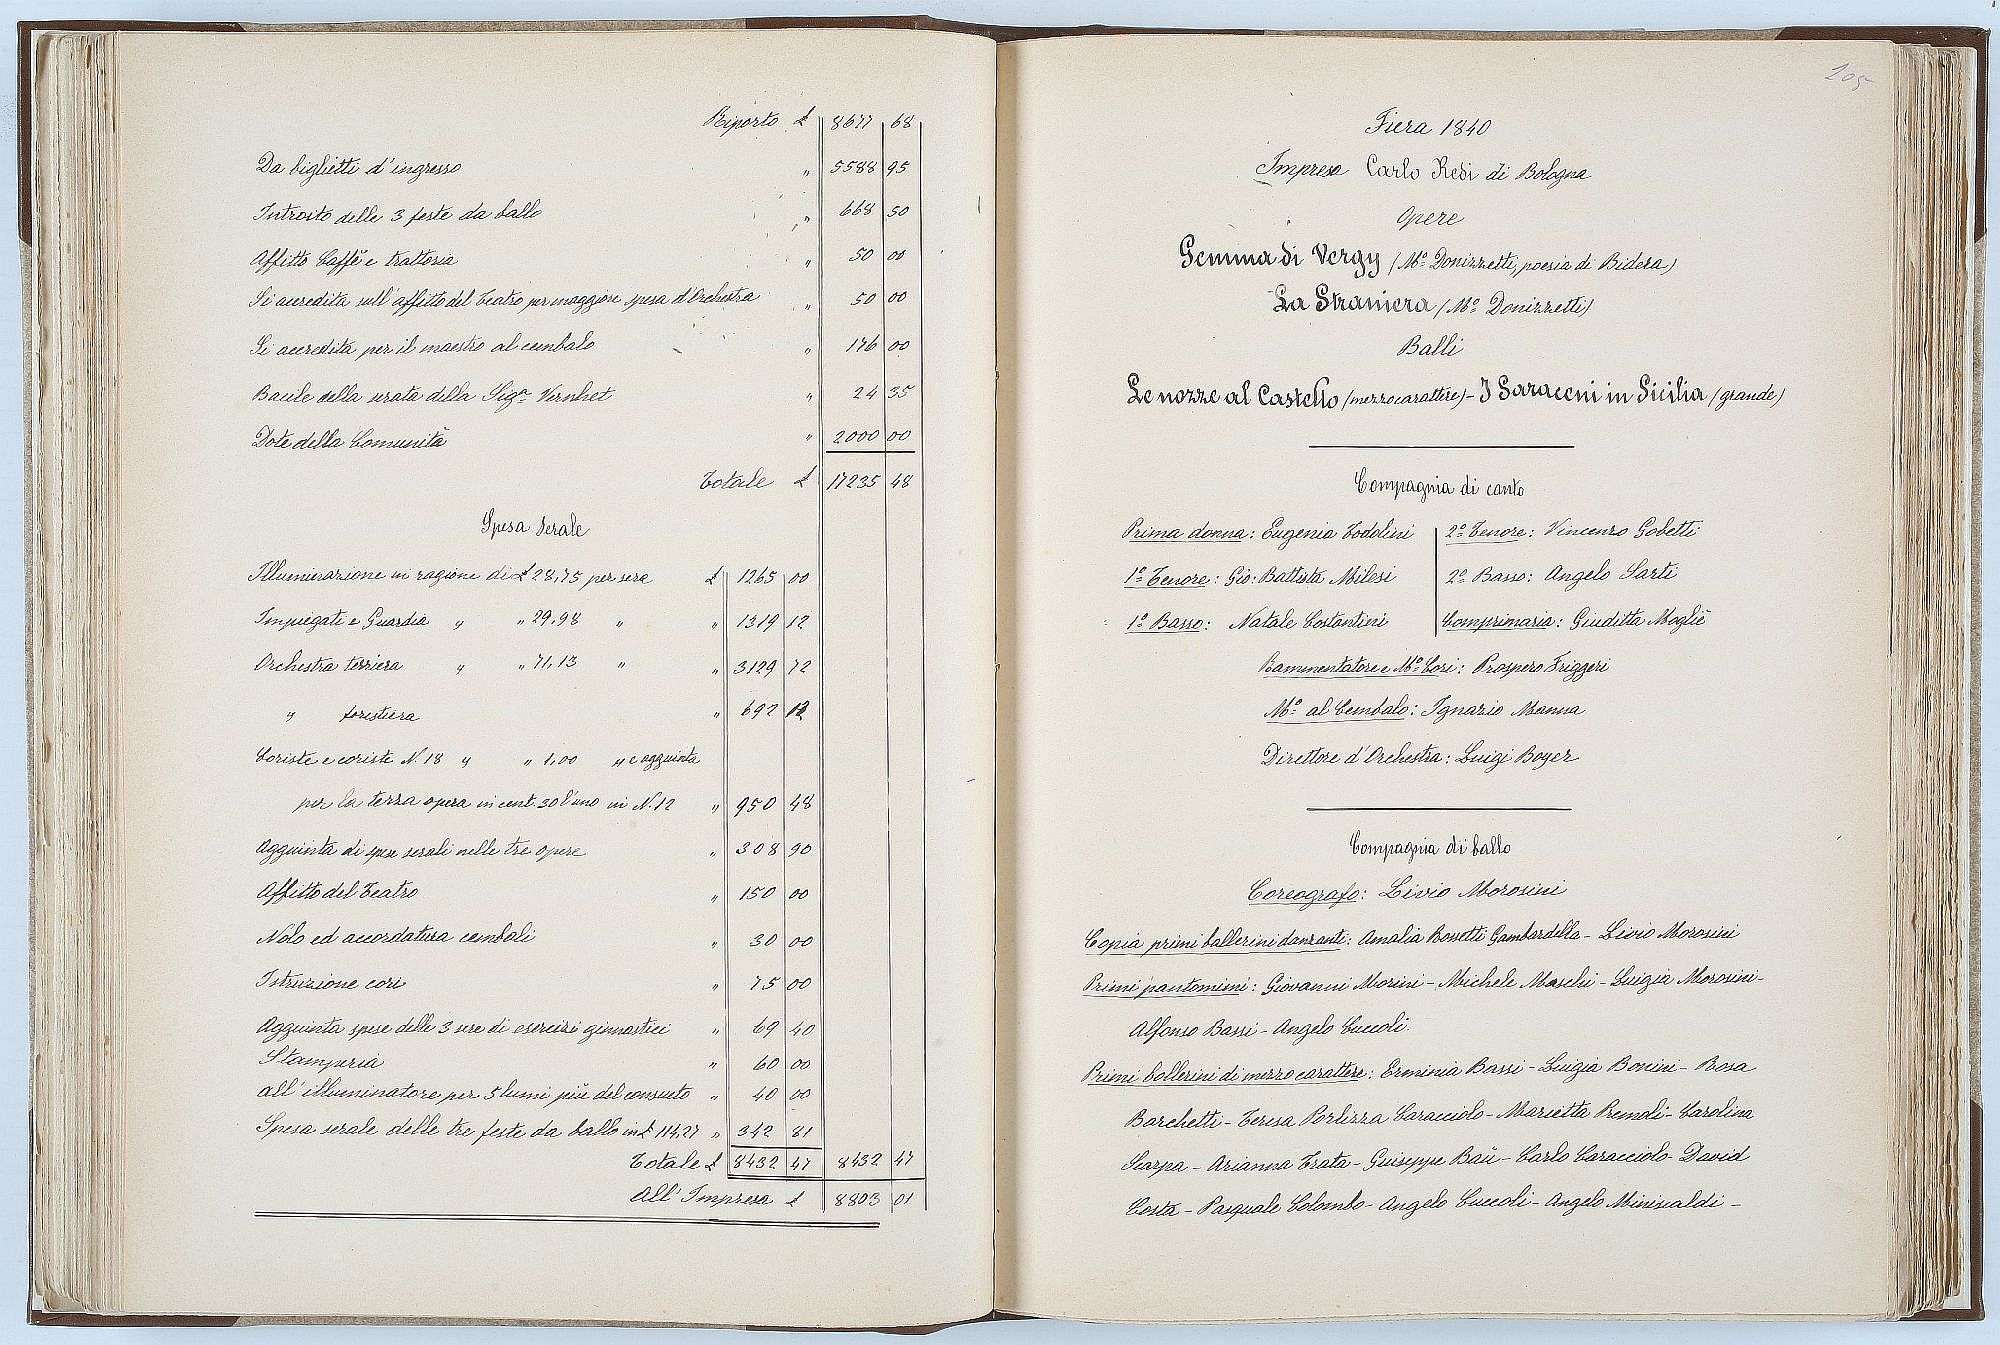 Riporto £ 8677 68
Da biglietti d'ingresso " 5588 95
Introito delle 3 feste da ballo " 668 50
Affitto Caffè e trattoria " 50 00
Si accredita sull'affitto del Teatro per maggiore spesa d'Orchestra " 50 00
Si accredita per il maestro al cembalo " 176 00
Bacile della serata della Sigra Vernhet " 24 35
Dote della Comunità " 2000 00
Totale £ 17235 48
Spesa serale
Illuminazione in ragione di £ 28,75 per sera £ 1265 00
Impiegati e Guardia " " 29,98 " " 1319 12
Orchestra terriera " " 71,13 " " 3129 72
" forestiera " 692 12
Coriste e coristi N. 18 " " 1,00 " e aggiunta
per la terza opera in cent. 30 l'uno in N. 12 " 950 48
Aggiunta di spese serali nelle tre opere " 308 90
Affitto del Teatro " 150 00
Nolo ed accordatura cembali " 30 00
Istruzione cori " 75 00
Aggiunta spese delle 3 sere di esercizi ginnastici " 69 40
Stamperia " 60 00
All'illuminatore per 5 lumi più del consueto " 40 00
Spesa serale delle tre feste da ballo in £ 114,27 " 342 81
Totale £ 8432 47 8432 47
All'Impresa £ 8803 01
205
Fiera 1840
Impresa Carlo Redi di Bologna
Opere
Gemma di Vergy (Mo. Donizzetti, poesia di Bidera)
La Straniera (Mo. Donizzetti)
Balli
Le nozze al Castello (mezzocarattere) - I Saraceni in Sicilia (grande)
Compagnia di canto
Prima donna: Eugenia Todolini 2o. Tenore: Vincenzo Gobetti
1o. Tenore: Gio: Battista Milesi 2o. Basso: Angelo Sarti
1o. Basso: Natale Costantini Comprimaria: Giuditta Moglié
Rammentatore e Mo. Cori: Prospero Friggeri
Mo. al Cembalo: Ignazio Manna
Direttore d'Orchestra: Luigi Boyer
Compagnia di ballo
Coreografo: Livio Morosini
Copia primi ballerini danzanti: Amalia Bonetti Gambardella - Livio Morosini
Primi pantomimi: Giovanni Morini - Michele Maschi - Luigia Morosini -
Alfonso Bassi - Angelo Cuccoli.
Primi ballerini di mezzo carattere: Erminia Bassi - Luigia Bonini - Rosa
Barchetti - Teresa Perlizza Caracciolo - Marietta Remoli - Carolina
Scarpa - Arianna Trata - Guiseppe Baù - Carlo Caracciolo - David
Costa - Pasquale Colombo - Angelo Cuccoli - Angelo Minisvaldi -